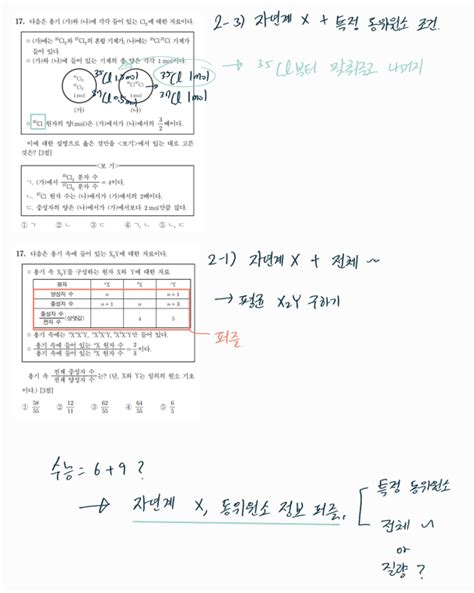 17. 다음은 용기 (가)와 (나)에 각각 들어 있는 Cl₂에 대한 자료이다.
2-3) 자연계 X + 특정 동위원소 조건.
○ (가)에는 ³⁵Cl₂와 ³⁷Cl₂의 혼합 기체가, (나)에는 ³⁵Cl³⁷Cl 기체가 들어 있다.
○ (가)와 (나)에 들어 있는 기체의 총 양은 각각 1 mol이다.
→ ³⁵Cl부터 맞춰주고 나머지
³⁵Cl 1.5mol
³⁷Cl 0.5mol
³⁵Cl 1mol
³⁷Cl 1mol
³⁵Cl₂
³⁷Cl₂
1 mol
³⁵Cl³⁷Cl
1 mol
(가) (나)
○ ³⁵Cl 원자의 양(mol)은 (가)에서가 (나)에서의 3/2배이다.
이에 대한 설명으로 옳은 것만을 <보기>에서 있는 대로 고른 것은? [3점]
<보 기>
ㄱ. (가)에서 ³⁵Cl₂ 분자 수/³⁷Cl₂ 분자 수 = 4이다.
ㄴ. ³⁷Cl 원자 수는 (나)에서가 (가)에서의 2배이다.
ㄷ. 중성자의 양은 (나)에서가 (가)에서보다 2 mol만큼 많다.
① ㄱ ② ㄴ ③ ㄷ ④ ㄱ, ㄴ ⑤ ㄴ, ㄷ
17. 다음은 용기 속에 들어 있는 X₂Y에 대한 자료이다.
2-1) 자연계 X + 전체 ~
○ 용기 속 X₂Y를 구성하는 원자 X와 Y에 대한 자료
→ 평균 X₂Y 구하기
원자 ᵃX ᵇX ᶜY
양성자 수 n n+1
중성자 수 n+1 n n+3
중성자 수/전자 수 (상댓값) 4 5
→ 퍼즐
○ 용기 속에는 ᵃXᵃXᶜY, ᵃXᵇXᶜY, ᵇXᵇXᶜY만 들어 있다.
○ 용기 속에 들어 있는 ᵃX 원자 수/용기 속에 들어 있는 ᵇX 원자 수 = 2/3이다.
용기 속 전체 중성자 수/전체 양성자 수는? (단, X와 Y는 임의의 원소 기호이다.) [3점]
① 58/55 ② 12/11 ③ 62/55 ④ 64/55 ⑤ 6/5
수능 = 6+9 ?
→ 자연계 X, 동위원소 정보 퍼즐.
특정 동위원소
전체 ~
or
질량 ?